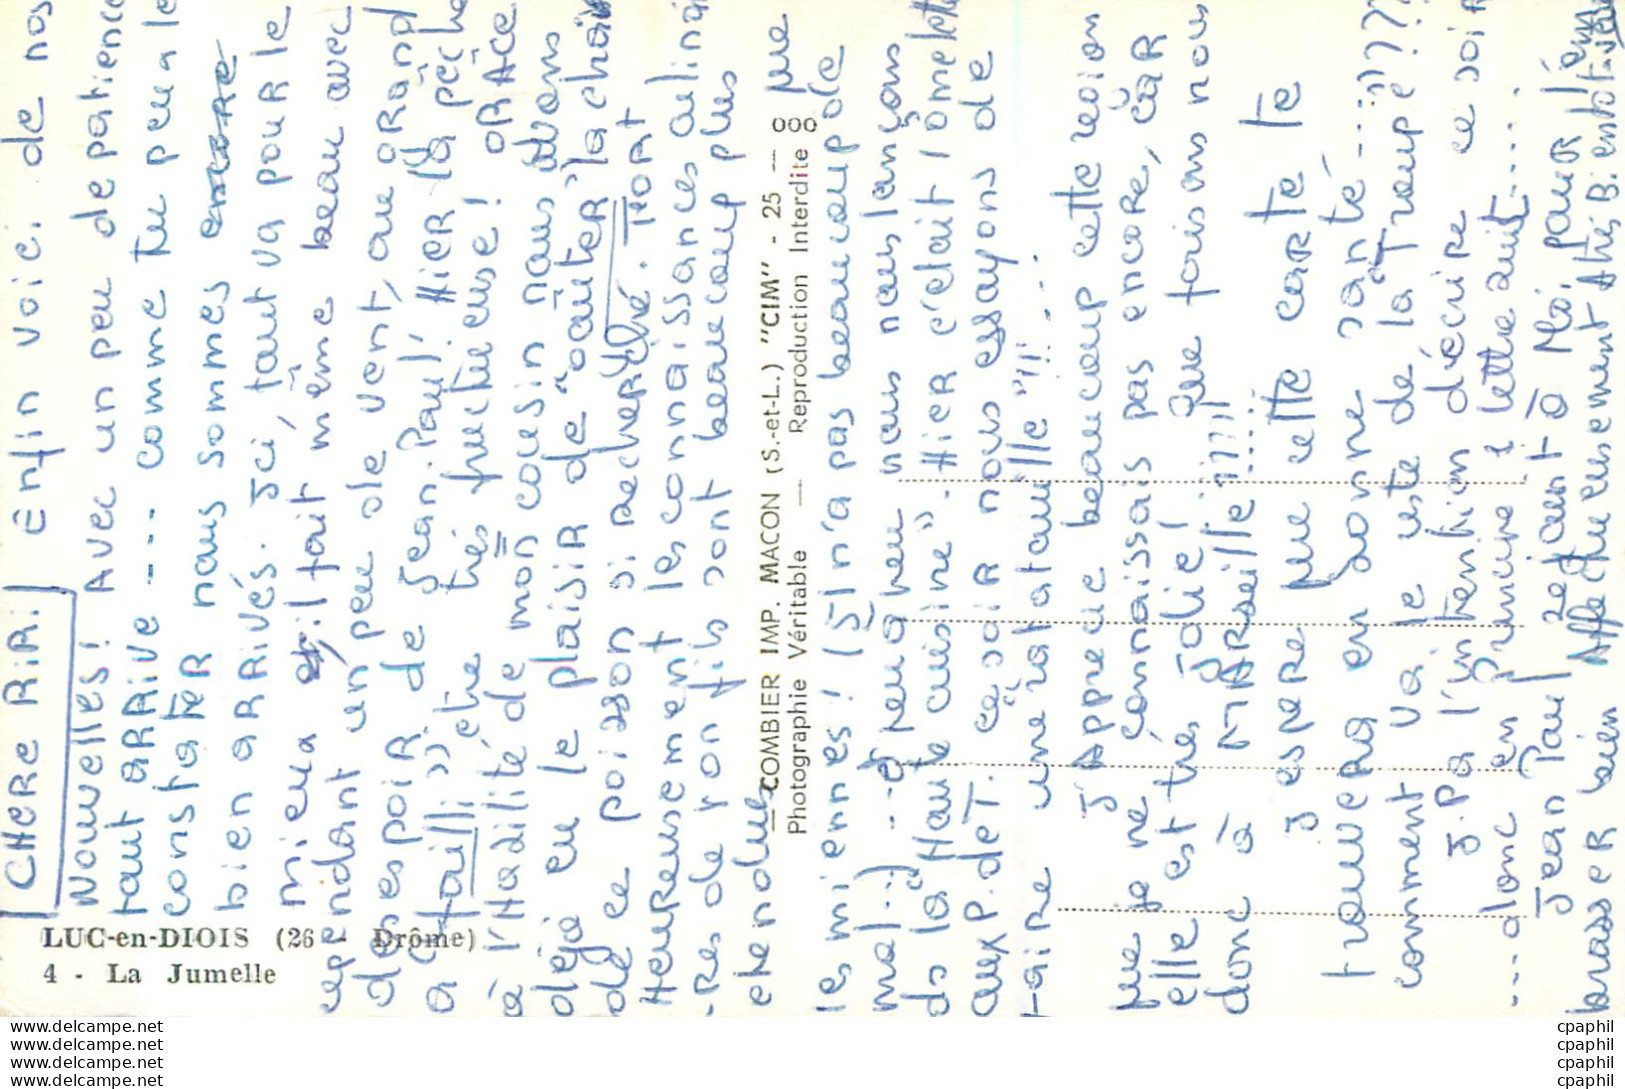 CHERE RIRI enfin voici de nos
Nouvelles! Avec un peu de patience
tout ARRIVE --- comme tu peux le
constater nous sommes encore
bien ARRIVÉS. Ici, tout va pour le
mieux il fait même beau avec
cependant un peu de vent, au grand
desespoir de Jean-Paul! Hier la pêche
a failli être très fructueuse! GRACE
à l'Habilité de mon cousin nous avons
déjà eu le plaisir de "goûter" la chair
de ce poisson si recherché. TRORT
Heureusement les connaissances culinai
-res de ton fils sont beaucoup plus
etendues que
les miennes! (S'il n'a pas beaucoup de
mal :) --- et peu a peu nous nous lançons
ds la "Haute cuisine". Hier c'était l'omelette
aux P. de T. Ce soir nous essayons de
faire une ratatouille "!! ...
J'Apprecie beaucoup cette region
que je ne connaissais pas encore, car
elle est très jolie! Que faisons nous
donc à MARseille ????!
J'espere que cette carte te
trouvera en bonne santé ....
comment va le reste de la "Troupe"????
J.P a l'intention d'écrire ce soir
... donc en primure 1 lettre suit....
Jean Paul se joint à Moi, pour t'em
brasser bien Affectueusement Atrés Bientôt
LUC-en-DIOIS (26 - Drôme)
4 - La Jumelle
COMBIER IMP. MACON (S.-et-L.) "CIM" - 25 — 000
Photographie Véritable — Reproduction Interdite
www.delcampe.net
www.delcampe.net
www.delcampe.net
www.delcampe.net
cpaphil
cpaphil
cpaphil
cpaphil